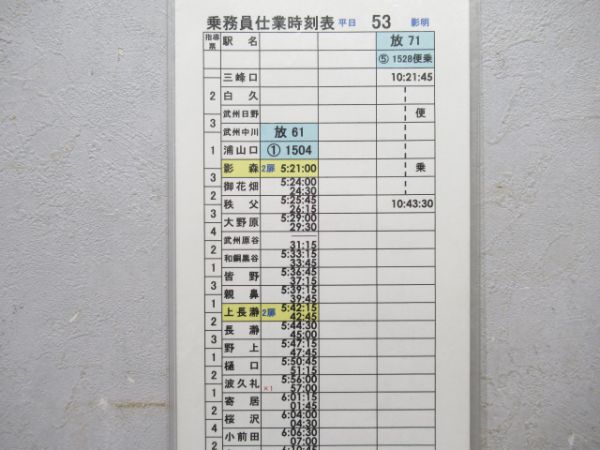 乗務員仕業時刻表 平日 53 影明
指導票 駅名 放 71
⑤ 1528便乗
三峰口 10:21:45
2 白久
武州日野 便
3 武州中川 放 61
1 浦山口 ① 1504
影森 2扉 5:21:00 乗
3 御花畑 5:24:00 24:30
2 秩父 5:25:45 26:15 10:43:30
3 大野原 5:29:00 29:30
4 武州原谷 31:15
2 和銅黒谷 5:33:15 33:45
1 皆野 5:36:45 37:15
3 親鼻 5:39:15 39:45
1 上長瀞 2扉 5:42:15 42:45
2 長瀞 5:44:30 45:00
3 野上 5:47:15 47:45
1 樋口 5:50:45 51:15
2 波久礼 ×1 5:56:00 57:00
1 寄居 6:01:15 01:45
2 桜沢 6:04:00 04:30
4 小前田 6:06:30 07:00
2